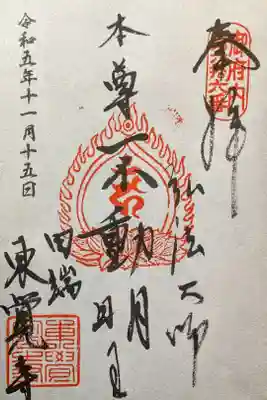 奉拝
御府内
弘法大師
本尊不動明王
田端
東覺寺
令和五年十一月十五日